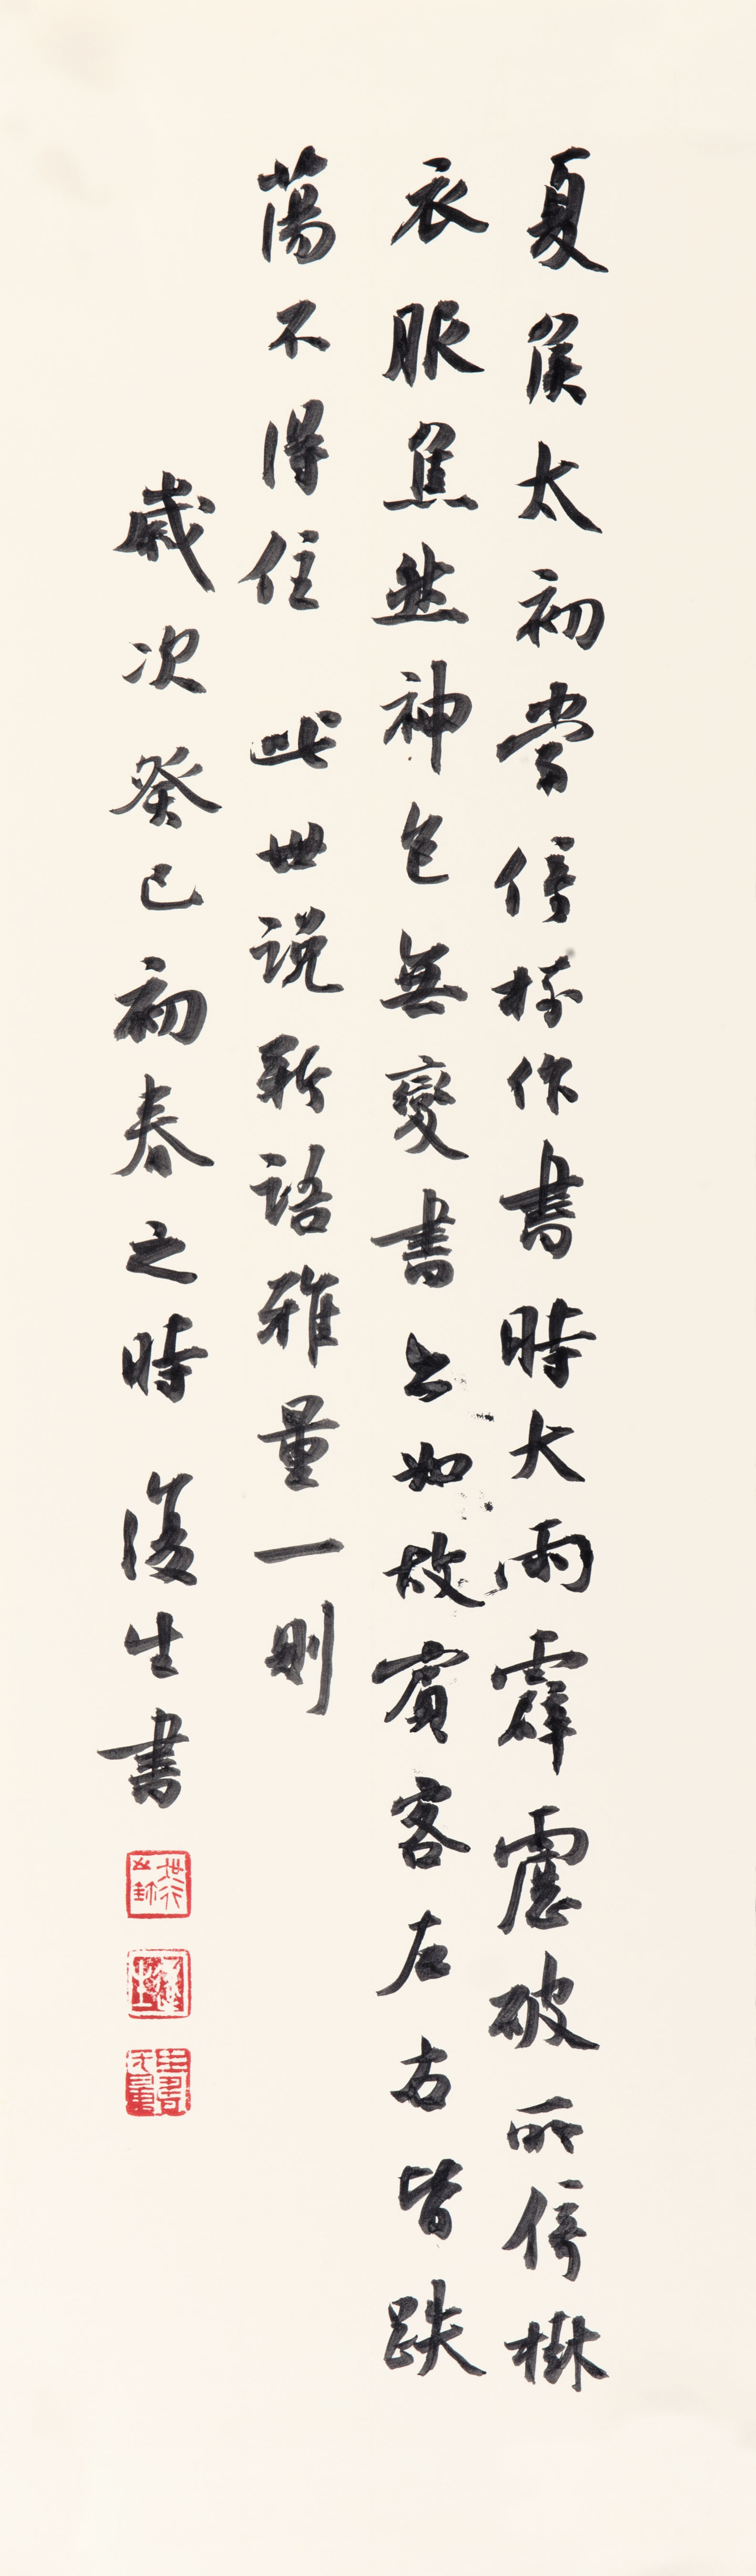 夏侯太初嘗倚柱作書時大雨霹靂破所倚柱
衣服焦然神色無變書亦如故賓客左右皆跌
蕩不得住 此世說新語雅量一則
歲次癸巳初春之時 後生書